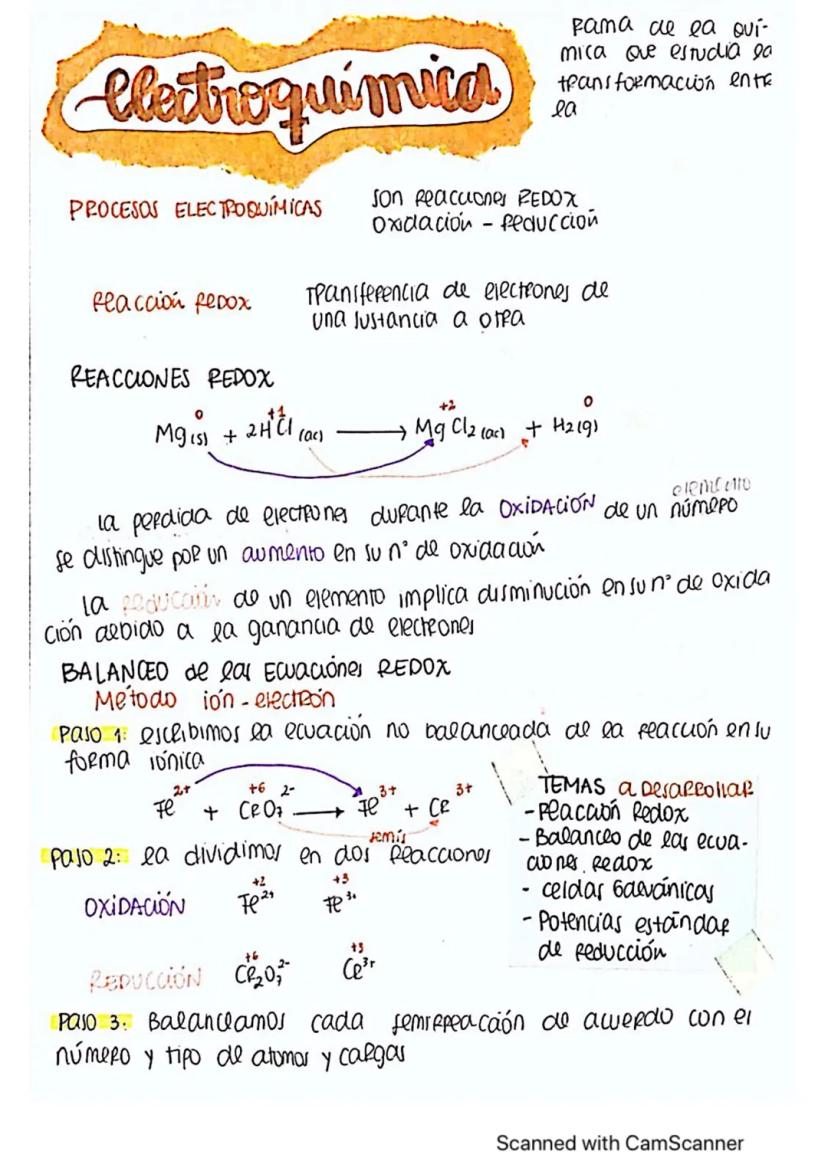 electroquímica
Rama de la quí-
mica que estudia la
transformación entre
la
PROCESOS ELECTROQUÍMICAS
son reacciones REDOX
oxidación - reducción
Reacción Redox
Transferencia de electrones de
una sustancia a otra
REACCIONES REDOX
0 +1 +2 0
Mg(s) + 2HCl (ac) → MgCl2 (ac) + H2(g)
elemento
la perdida de electrones durante la OXIDACIÓN de un número
se distingue por un aumento en su n° de oxidación
la reducción de un elemento implica disminución en su n° de oxida
ción debido a la ganancia de electrones
BALANCEO de las Ecuaciónes REDOX
Método ión-electrón
Paso 1: escribimos la ecuación no balanceada de la reacción en su
forma iónica
+6
Fe²⁺ + CrO₇²⁻ → Fe³⁺ + Cr³⁺
semis
Paso 2: la dividimos en dos Reacciones
+2 +3
OXIDACIÓN Fe²⁺ Fe³⁺
+6 +3
REDUCCIÓN Cr₂O₇²⁻ Cr³⁺
TEMAS a Desarrollar
- Reacción Redox
- Balanceo de las ecua-
ciones Redox
- celdas Galvánicas
- Potencias estándar
de reducción
Paso 3: Balanceamos cada semirreacción de acuerdo con el
número y tipo de atomos y cargas
Scanned with CamScanner